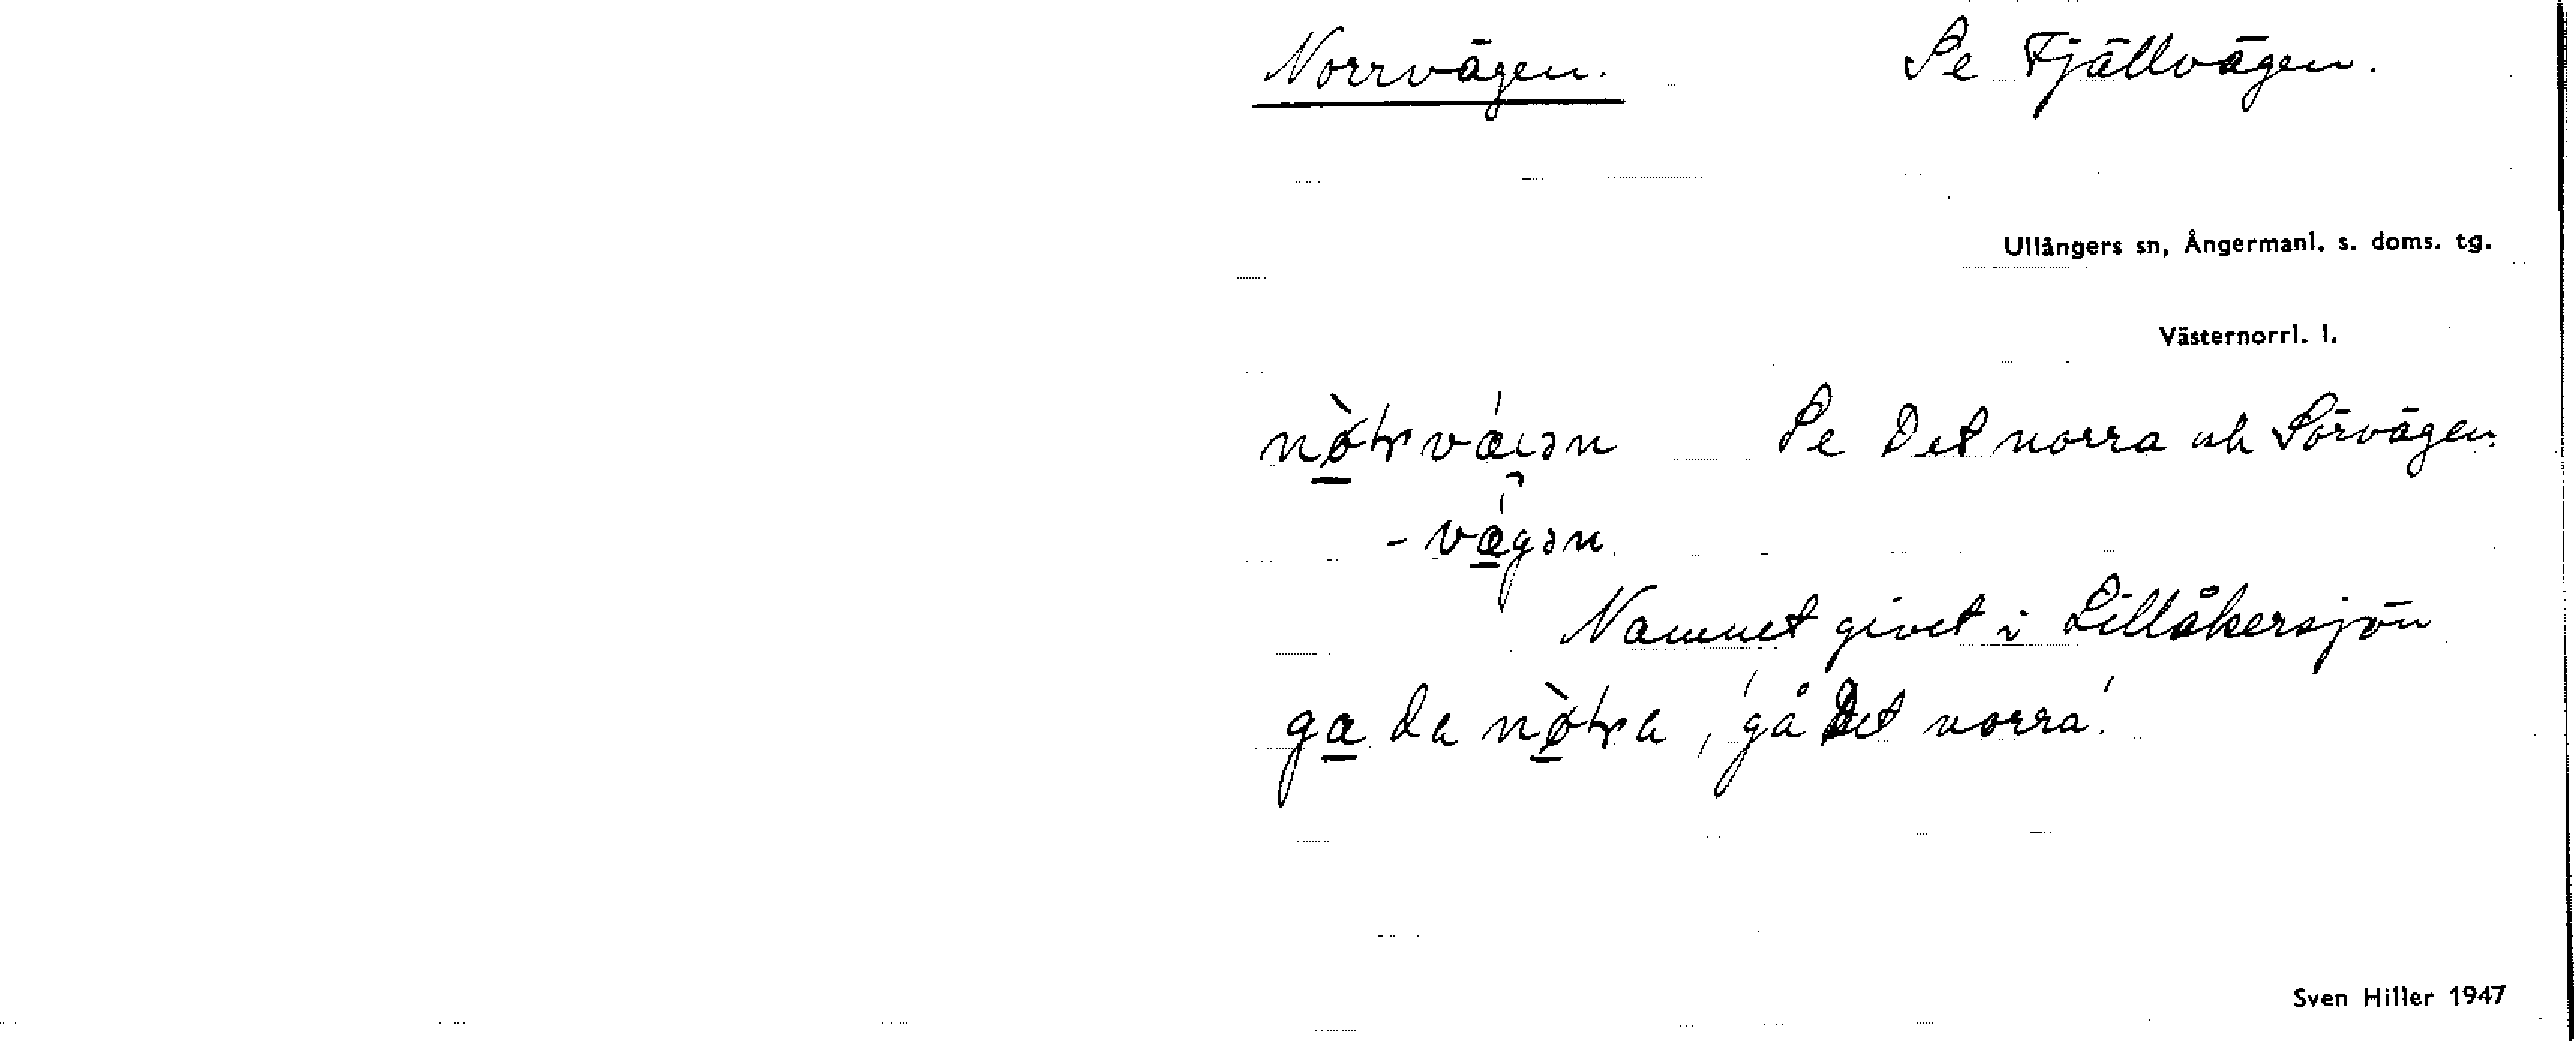 Norrvägen. Se Fjällvägen.
Ullångers sn, Ångermanl. s. doms. tg.
Västernorrl. l.
Se Det norra och Sörvägen.
Namnet givet i Lillåkersjön
'gå Det norra'.
Sven Hiller 1947